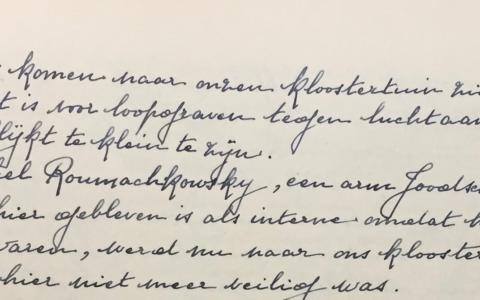 komen naar onzen kloostertuin
t is voor loopgraven tegen luchtaan
lijkt te klein te zijn.
el Roumachkowsky, een arm Joodsc
hier gebleven is als interne omdat
waren, werd nu naar ons klooster
hier niet meer veilig was.